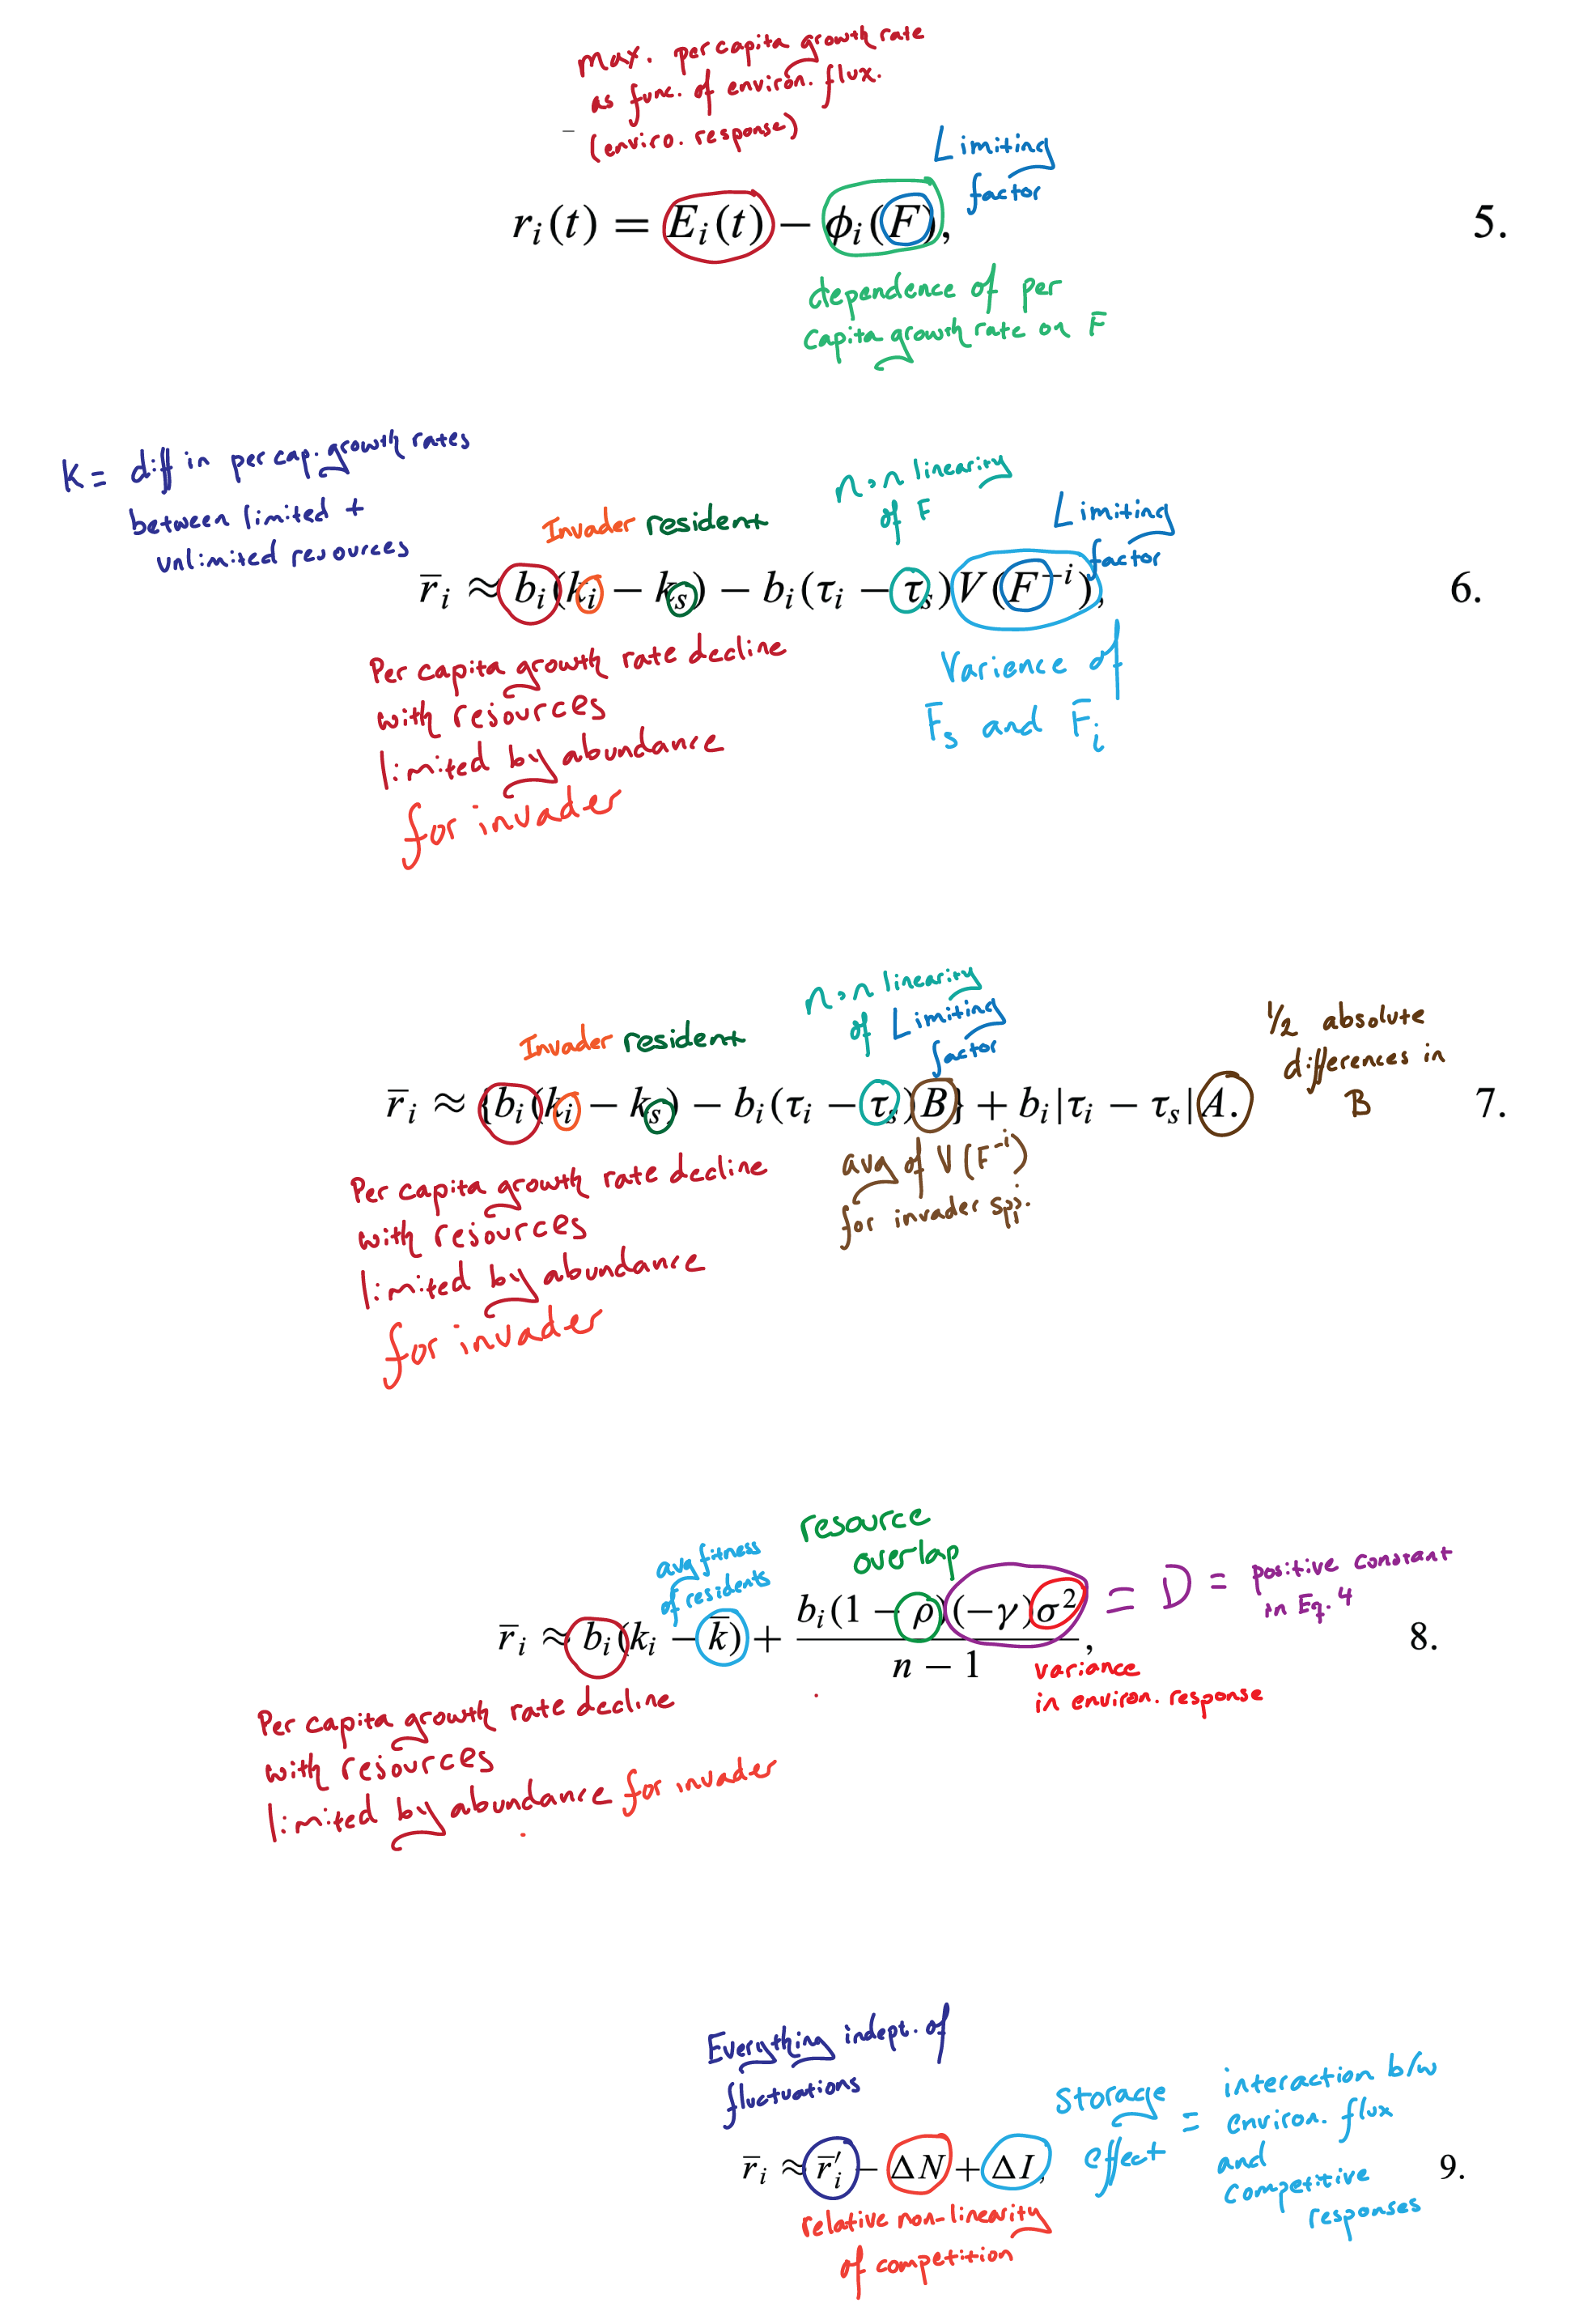 max. per capita growth rate
as func. of environ. flux.
(enviro. response)
Limiting
factor
r_i(t) = E_i(t) − ϕ_i(F), 5.
dependence of per
capita growth rate on F
K = diff in per cap. growth rates
between limited +
unlimited resources
non linearity
of F
Invader resident
Limiting
factor
r̅_i ≈ b_i(k_i − k_s) − b_i(τ_i − τ_s)V(F^{−i}), 6.
Per capita growth rate decline
with resources
limited by abundance
for invader
Varience of
F_s and F_i
non linearity
of Limiting
factor
Invader resident
1/2 absolute
differences in
B
r̅_i ≈ {b_i(k_i − k_s) − b_i(τ_i − τ_s)B} + b_i|τ_i − τ_s|A. 7.
avg of V(F^{-i})
for invader spi.
Per capita growth rate decline
with resources
limited by abundance
for invader
resource
overlap
avg fitness
of residents
r̅_i ≈ b_i(k_i − k̅) + b_i(1 − ρ)(−γ)σ² / n − 1, 8.
= D = positive constant
in Eq. 4
variance
in environ. response
Per capita growth rate decline
with resources
limited by abundance for invader
Everything indept. of
fluctuations
r̅_i ≈ r̅′_i − ΔN + ΔI, 9.
storage
effect
= interaction b/w
environ. flux
and
competitive
responses
relative non-linearity
of competition